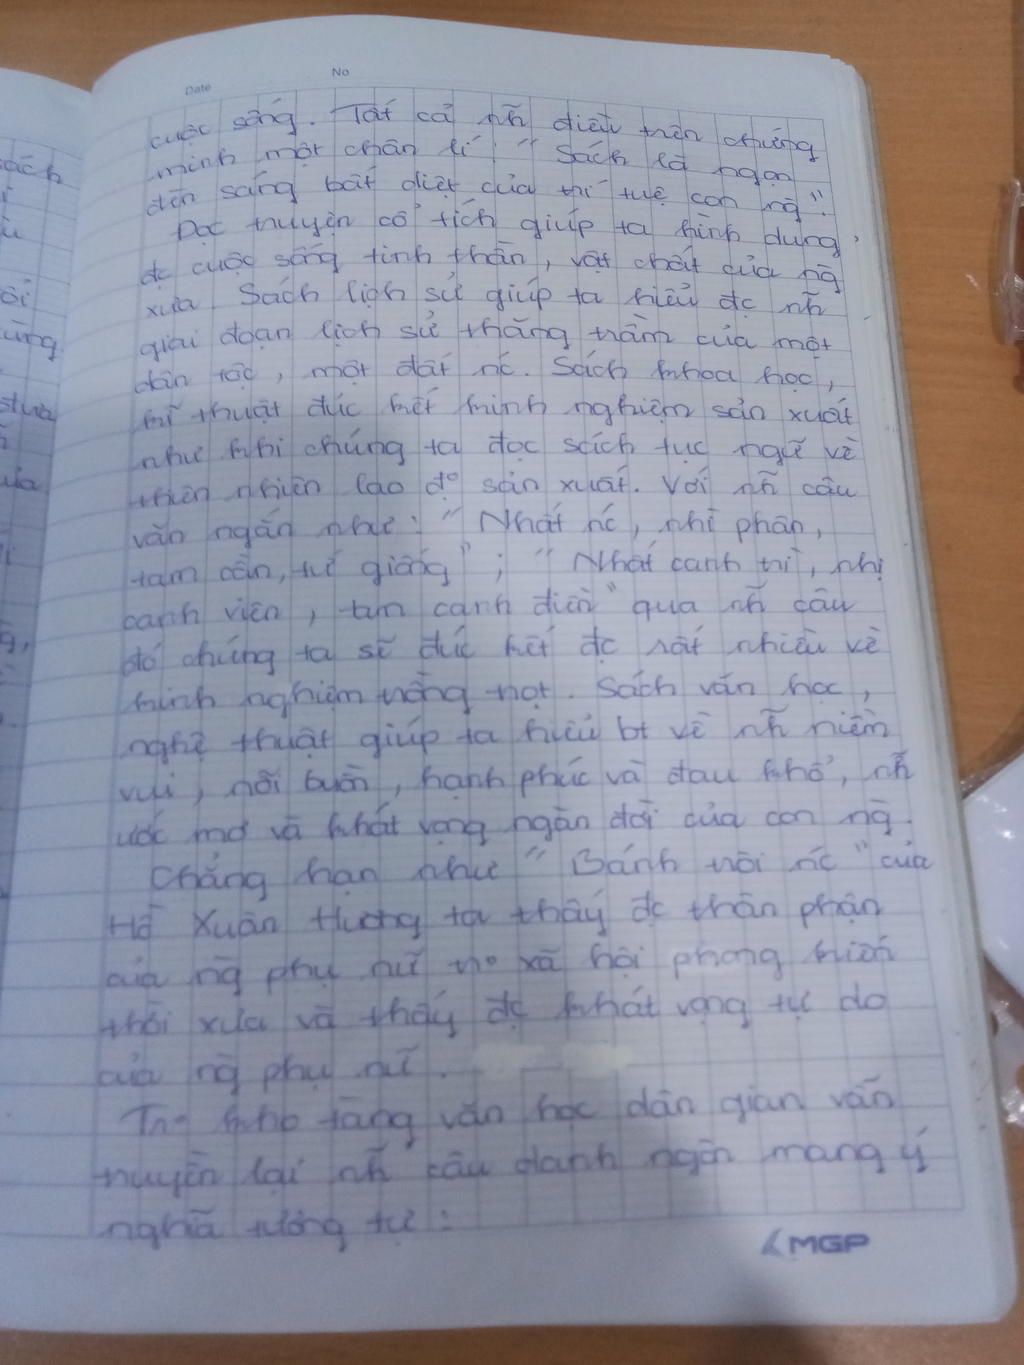 Date
No
cuộc sống. Tất cả nh~ điều trên chứng
minh một chân lí: "Sách là ngọn
đèn sáng bất diệt của trí tuệ con ng`".
Đọc truyện cổ tích giúp ta hình dung
đc cuộc sống tinh thần, vật chất của ng`
xưa. Sách lịch sử giúp ta hiểu đc nh~
giai đoạn lịch sử thăng trầm của một
dân tộc, một đất nc. Sách khoa học,
kĩ thuật đúc kết kinh nghiệm sản xuất
như khi chúng ta đọc sách tục ngữ về
thiên nhiên lao đ° sản xuất. Với nh~ câu
văn ngắn như: "Nhất nc, nhì phân,
tam cần, tứ giống"; "Nhất canh trì, nhị
canh viên, tam canh điền" qua nh~ câu
đó chúng ta sẽ đúc kết đc rất nhiều về
kinh nghiệm trồng trọt. Sách văn học,
nghệ thuật giúp ta hiểu bt về nh~ niềm
vui, nỗi buồn, hạnh phúc và đau khổ, nh~
ước mơ và khát vọng ngàn đời của con ng`.
Chẳng hạn như "Bánh trôi nc" của
Hồ Xuân Hương ta thấy đc thân phận
của ng` phụ nữ tr° xã hội phong kiến
thời xưa và thấy đc khát vọng tự do
của ng` phụ nữ.
Tr° kho tàng văn học dân gian vẫn
truyền lại nh~ câu danh ngôn mang ý
nghĩa tương tự:
MGP
sách
dựa